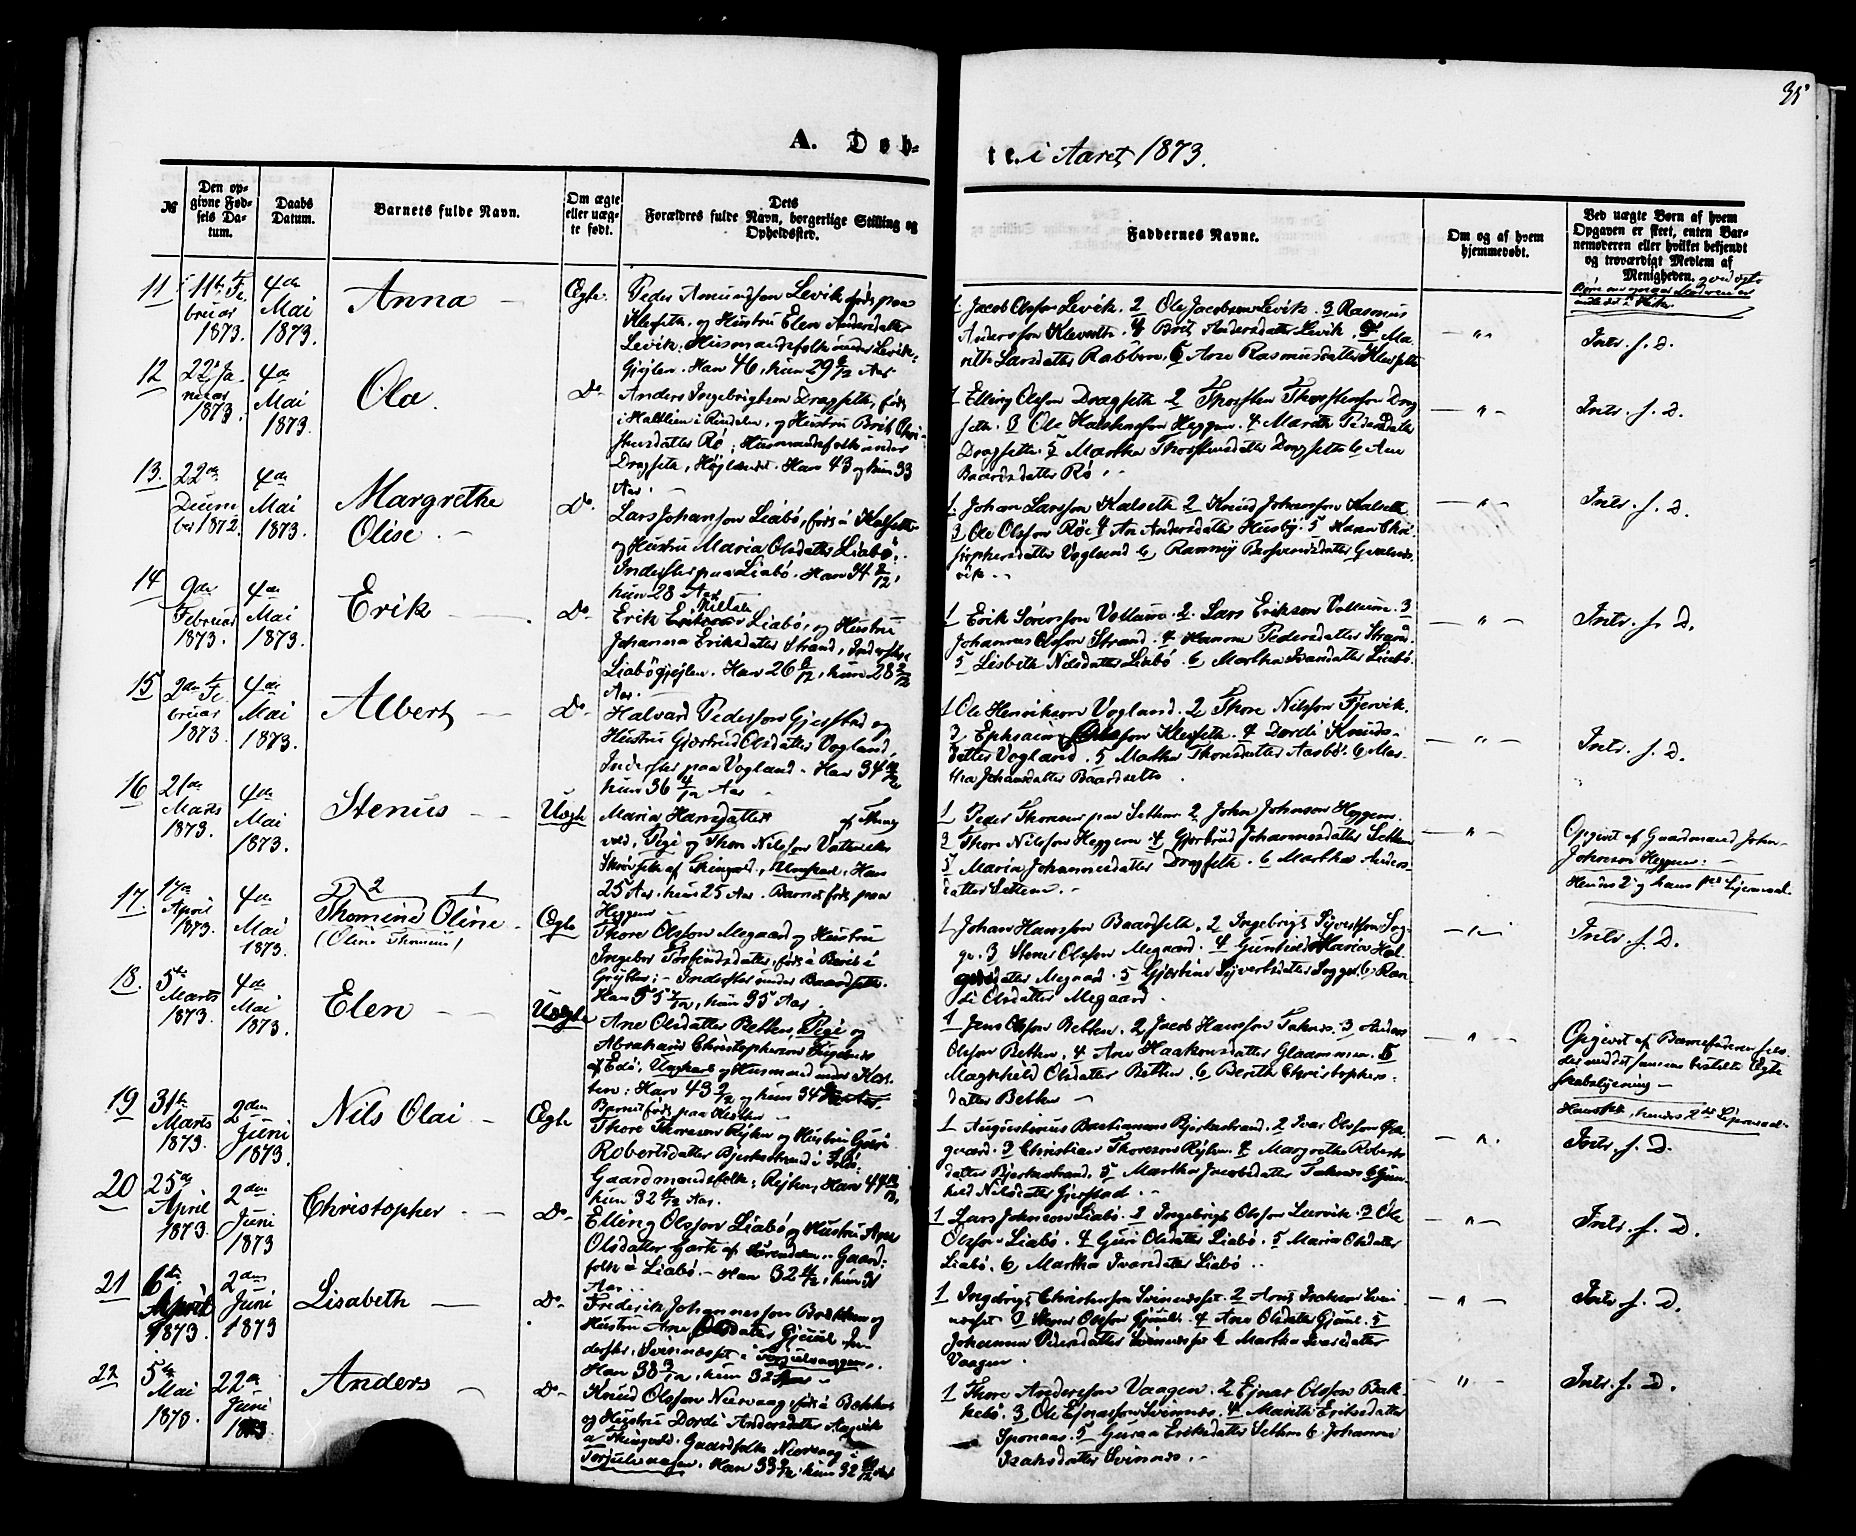 35
A. Døb-
te. i Aaret 1873.
№
Den op-
givne Fød-
sels Da-
tum.
Daabs
Datum.
Barnets fulde Navn.
Om ægte
eller uæg-
te født.
Dets
Forældres fulde Navn, borgerlige Stilling og
Opholdssted.
Faddernes Navne.
Om og af hvem
hjemmedøbt.
Ved uægte Børn af hvem
Opgaven er skeet, enten Bar-
nemoderen eller hvilket bekjendt
og troværdigt Medlem af
Menigheden.
11
11te Fe
bruar
1873.
4de
Mai
1873.
Anna
Ægte.
Peder Amundsson Levik født paa
Klevseth, og Hustru Elen Andersdatter
Levik. Husmandsfolk under Levik-
Gjøjlen. Han 46, hun 29 Aar
1. Jacob Olsson Levik. 2 Ole Jacobsen Levik. 3 Rasmus
Andersson Klevseth. 4 Brit Andersdatter Levik. 5 Ma-
rith Larsdatter Rabben. 6 Ane Rasmusdatter Klevseth
— " —
Intr. f. D.
12
22de Ja-
nuar
1873.
4de
Mai
1873.
Ola.
Do
Anders Ingebrigtsen Dragseth, født
i Haltlien i Rindalen, og Hustru Brit Chri-
stensdatter Rø; Husmandsfolk under
Dragseth, Højlandet. Han 43 og hun 33
Aar.
1 Elling Olsson Dragseth 2 Thorsten Thorstensson Drag
seth. 3 Ole Halstensson Heggem. 4 Marith Pedersdatter
Dragseth. 5 Martha Thorstensdatter Dragseth 6 Ane
Baardsdatter Rø
— " —
Intr. f. D.
13.
22de
Decem
ber 1872.
4de
Mai
1873.
Margrethe
Olise. —
Do
Lars Johansson Liabø, født i Kalseth
og Hustru Maria Olsdatter Liabø.
Inderster paa Liabø. Han 34 2/12,
hun 28 Aar
1. Johan Larsson Kalseth 2 Knud Johansson Kalseth
3 Ole Olsson Rø. 4 Ane Andersdatter Husby. 5 Karen Chri-
stophersdatter Vogland 6 Rannig
vik.
— " —
Intr. f. D.
14
9de
Februar
1873.
4de
Mai
1873.
Erik
Do
Erik Liabø, og Hustru
Johanna Eriksdatter Strand, Inderster
Liabøgjøjlen. Han 26, hun 28
Aar.
1 Erik Sørensson Vollum. 2. Lars Eriksen Vollum. 3
Johannes Olsson Strand. 4 Hanna Pedersdatter Strand.
5 Lisbeth Nilsdatter Liabø. 6 Martha Ivarsdatter Liabø.
— " —
Intr. f. D.
15
2den Fe
bruar
1873.
4de
Mai
1873.
Albert
Do
Halvard Pedersson Gjerstad og
Hustru Gjertrud Olsdatter Vogland,
Inderster paa Vogland. Han 34
hun 36 4/12 Aar
1 Ole Henriksson Vogland. 2 Thore Nilsson Fjervik.
3 Ephraim Olsson Klevseth. 4 Dordi Knuds-
datter Vogland. 5 Marthe Thoresdatter Aasbø. 6 Mar-
tha Johansdatter Baardseth
— " —
Intr. f. D.
16
21de
Marts
1873.
4de
Mai
1873.
Stenus
Uægte
Maria Hansdatter af Thing
vold, Pige og Thore Nilsson
Skorseth af Thingvold, Ungkarl, Han
25 Aar. hun 25 Aar. Barnet født paa
Heggem
1 Peder Thoresen paa Settem. 2 John Johnson Heggem.
3 Thore Nilsson Heggem 4 Gjertrud Johannesdatter Settem
5 Maria Johannesdatter Dragseth. 6 Martha Anders-
datter Settem.
— " —
Opgivet af Gaardmand John
Johnson Heggem: —
Hendes 2 og hans første Lejermaal.
17.
17de
April
1873.
4de
Mai
1873.
2 1
Thomine Oline
(Oline Thomine)
Ægte
Thore Olsson Megaard og Hustru
Ingebor Torfindsdatter, født i
Gryten; Inderster under Baardseth.
Han 55 7/12, hun 35 Aar
1 Johan Hansson Baardseth. 2 Ingebrigt Syvertsson Sog-
ge. 3 Stener Olsson Megaard. 4 Gunhild Maria
datter Megaard. 5 Gjertine Syvertsdatter Sogge 6 Ran-
di Olsdatter Megaard.
— " —
Intr. f. D.
18.
5te
Marts
1873.
4de
Mai
1873.
Elen
Uægte
Ane Olsdatter Betten, Pige og
Abraham Christophersen
af Edø, Ungkarl og Husmand under
Han 43 2/12 og hun 34
Barnet født paa
1 Jens Olsson Betten. 2 Jacob Hansson Taknes. 3 Anders
Olsson Betten. 4 Ane Haakonsdatter Glaammen. 5
Magnhild Olsdatter Betten. 6 Berith Christophers-
datter Betten
— " —
Opgivet af Barnefaderen
ved det sammen bestilte Ægte
skabslysning —
Hans første, hendes 2det Lejermaal.
19
31te
Marts
1873.
2den
Juni
1873.
Nils Olai
Ægte
Thore Thoresen Rejten og Hustru
Robertsdatter Bjerkestrand i
Gaardmandsfolk: Rejten, Han 44
hun 32 Aar.
1 Augustinus Bastiansen Bjerkestrand. 2 Ivar Olsson
gaard. 3 Christian Thoresson Rejten. 4 Margrethe Roberts
datter Bjerkestrand. 5 Martha Jacobsdatter Taknes 6 Gun-
hild Nilsdatter Gjerstad
— " .
Intr. f. D.
20
25de
April
1873.
2den
Juni
1873
Christopher
Do
Elling Olsson Liabø og Hustru Ane
Olsdatter af Sørenden. Gaard-
folk i Liabø. — Han 32, hun 31
Aar
1 Lars Johansson Liabø. 2 Ingebrigt Olsson Lervik. 3 Ole
Olsson Liabø. 4 Guri Olsdatter Liabø. 5 Maria Olsdatter
Liabø. 6 Martha Ivarsdatter Liabø
— " —
Intr. f. D.
21
6te
April
1873.
2den
Juni
1873
Lisabeth
Do
Frederik Johannesson og
Hustru Ane Olsdatter Gjeul, In-
derster, Svinneset i Torjulvaagen.
Han 38 3/12, hun 32
1 Ingebrigt Christensson Svinneset. 2 Arnt Isakson Svin
neset 3 Stener Olsson Gjeul. 4 Ane Olsdatter Gjeul. 5
Johanna Pedersdatter Svinneset 6 Martha Ivarsdatter
Vaagen
— " —
Intr. f. D.
22
5te
Mai
1873.
22de
Juni
1873
Anders
Do
Knud Olsson Nervaag, født i Bekken
og Hustru Dordi Andersdatter Aasvik
i Thingvold. Gaardfolk Nervaag i
Torjulvaagen. Han 33, hun 32 Aar
1 Thore Andersson Vaagen. 2 Ejnar Olsson Bak-
kebø. 3 Ole Ejnarsson Svinnes. 4 Marith Eriksdatter
Sponaas. 5 Guraa Eriksdatter Settem 6 Johanna
Isaksdatter Svinnes.
— " —
Intr. f. D.